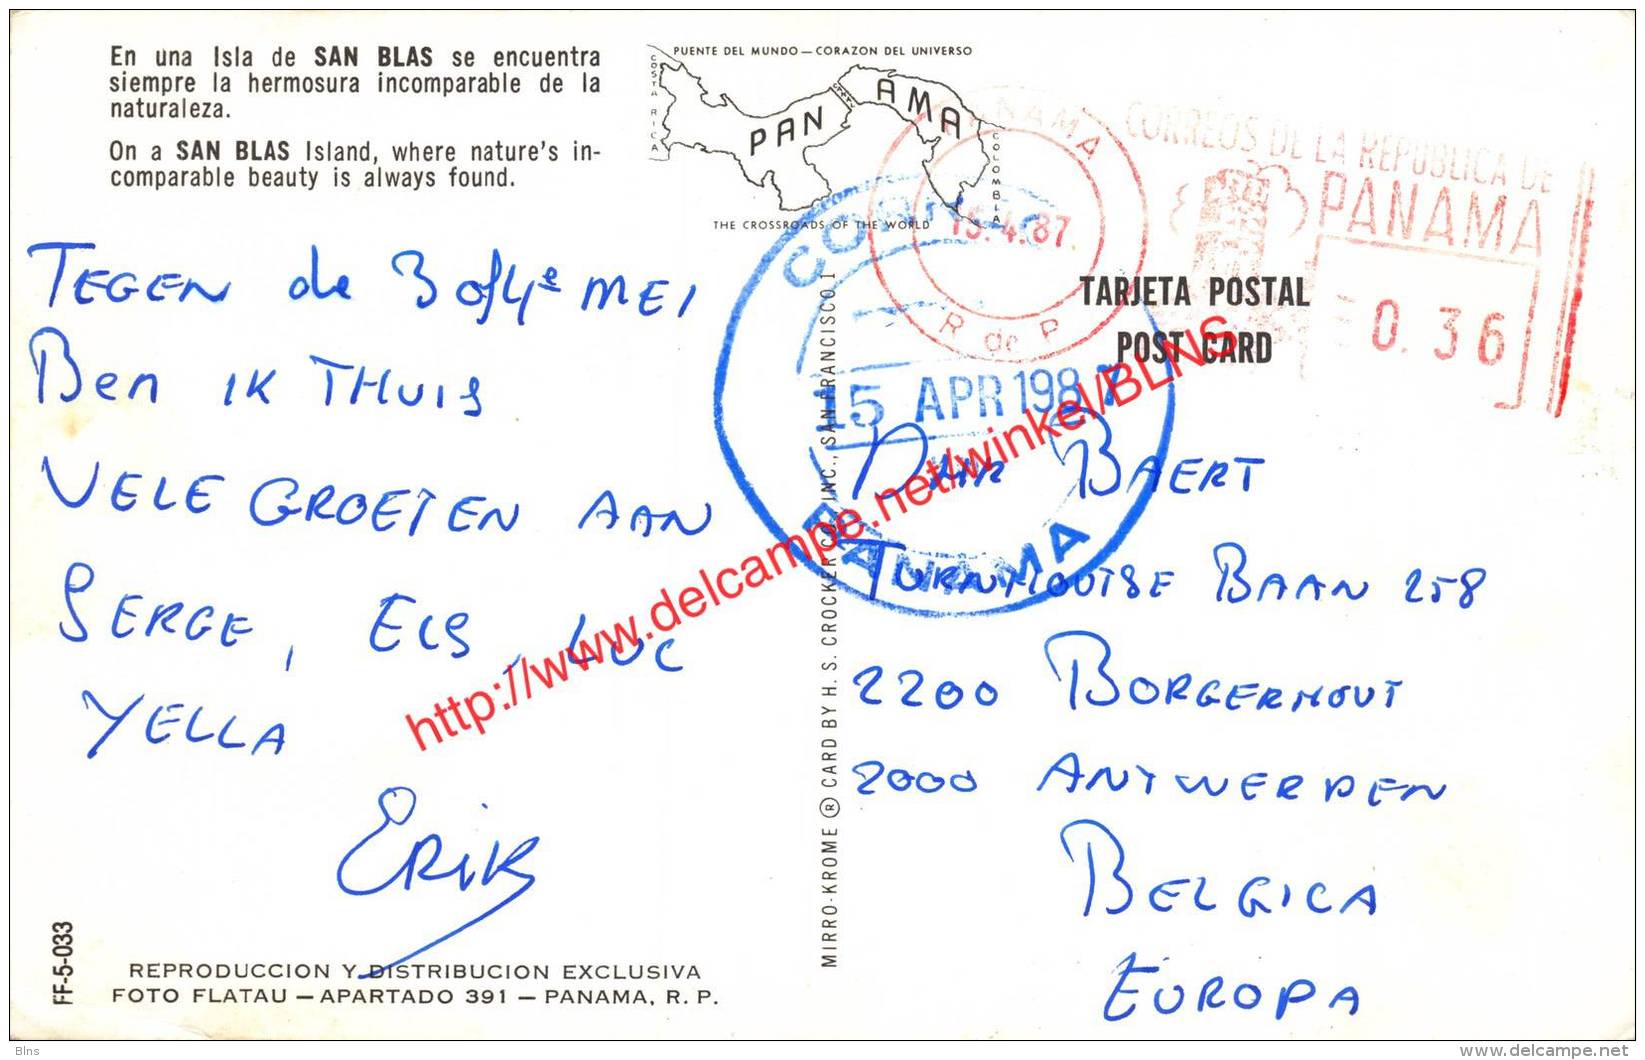 En una Isla de SAN BLAS se encuentra
siempre la hermosura incomparable de la
naturaleza.
On a SAN BLAS Island, where nature's in-
comparable beauty is always found.
PUENTE DEL MUNDO — CORAZON DEL UNIVERSO
COSTA RICA
PANAMA
COLOMBIA
THE CROSSROADS OF THE WORLD
PANAMA
15.4.87
R de P
CORREOS DE LA REPUBLICA DE
PANAMA
0.36
TARJETA POSTAL
POST CARD
15 APR 1987
PANAMA
TEGEN de 3 of 4e MEI
Ben IK THUIS
VELE GROETEN AAN
SERGE, ELS, LUC
YELLA
ERIK
BAERT
TURNHOUTSE BAAN 258
2200 BORGERHOUT
2000 ANTWERPEN
BELGICA
EUROPA
MIRRO-KROME ® CARD BY H. S. CROCKER CO., INC., SAN FRANCISCO 1
FF-5-033
REPRODUCCION Y DISTRIBUCION EXCLUSIVA
FOTO FLATAU — APARTADO 391 — PANAMA, R. P.
http://www.delcampe.net/winkel/BLNS
Blns
www.delcampe.net